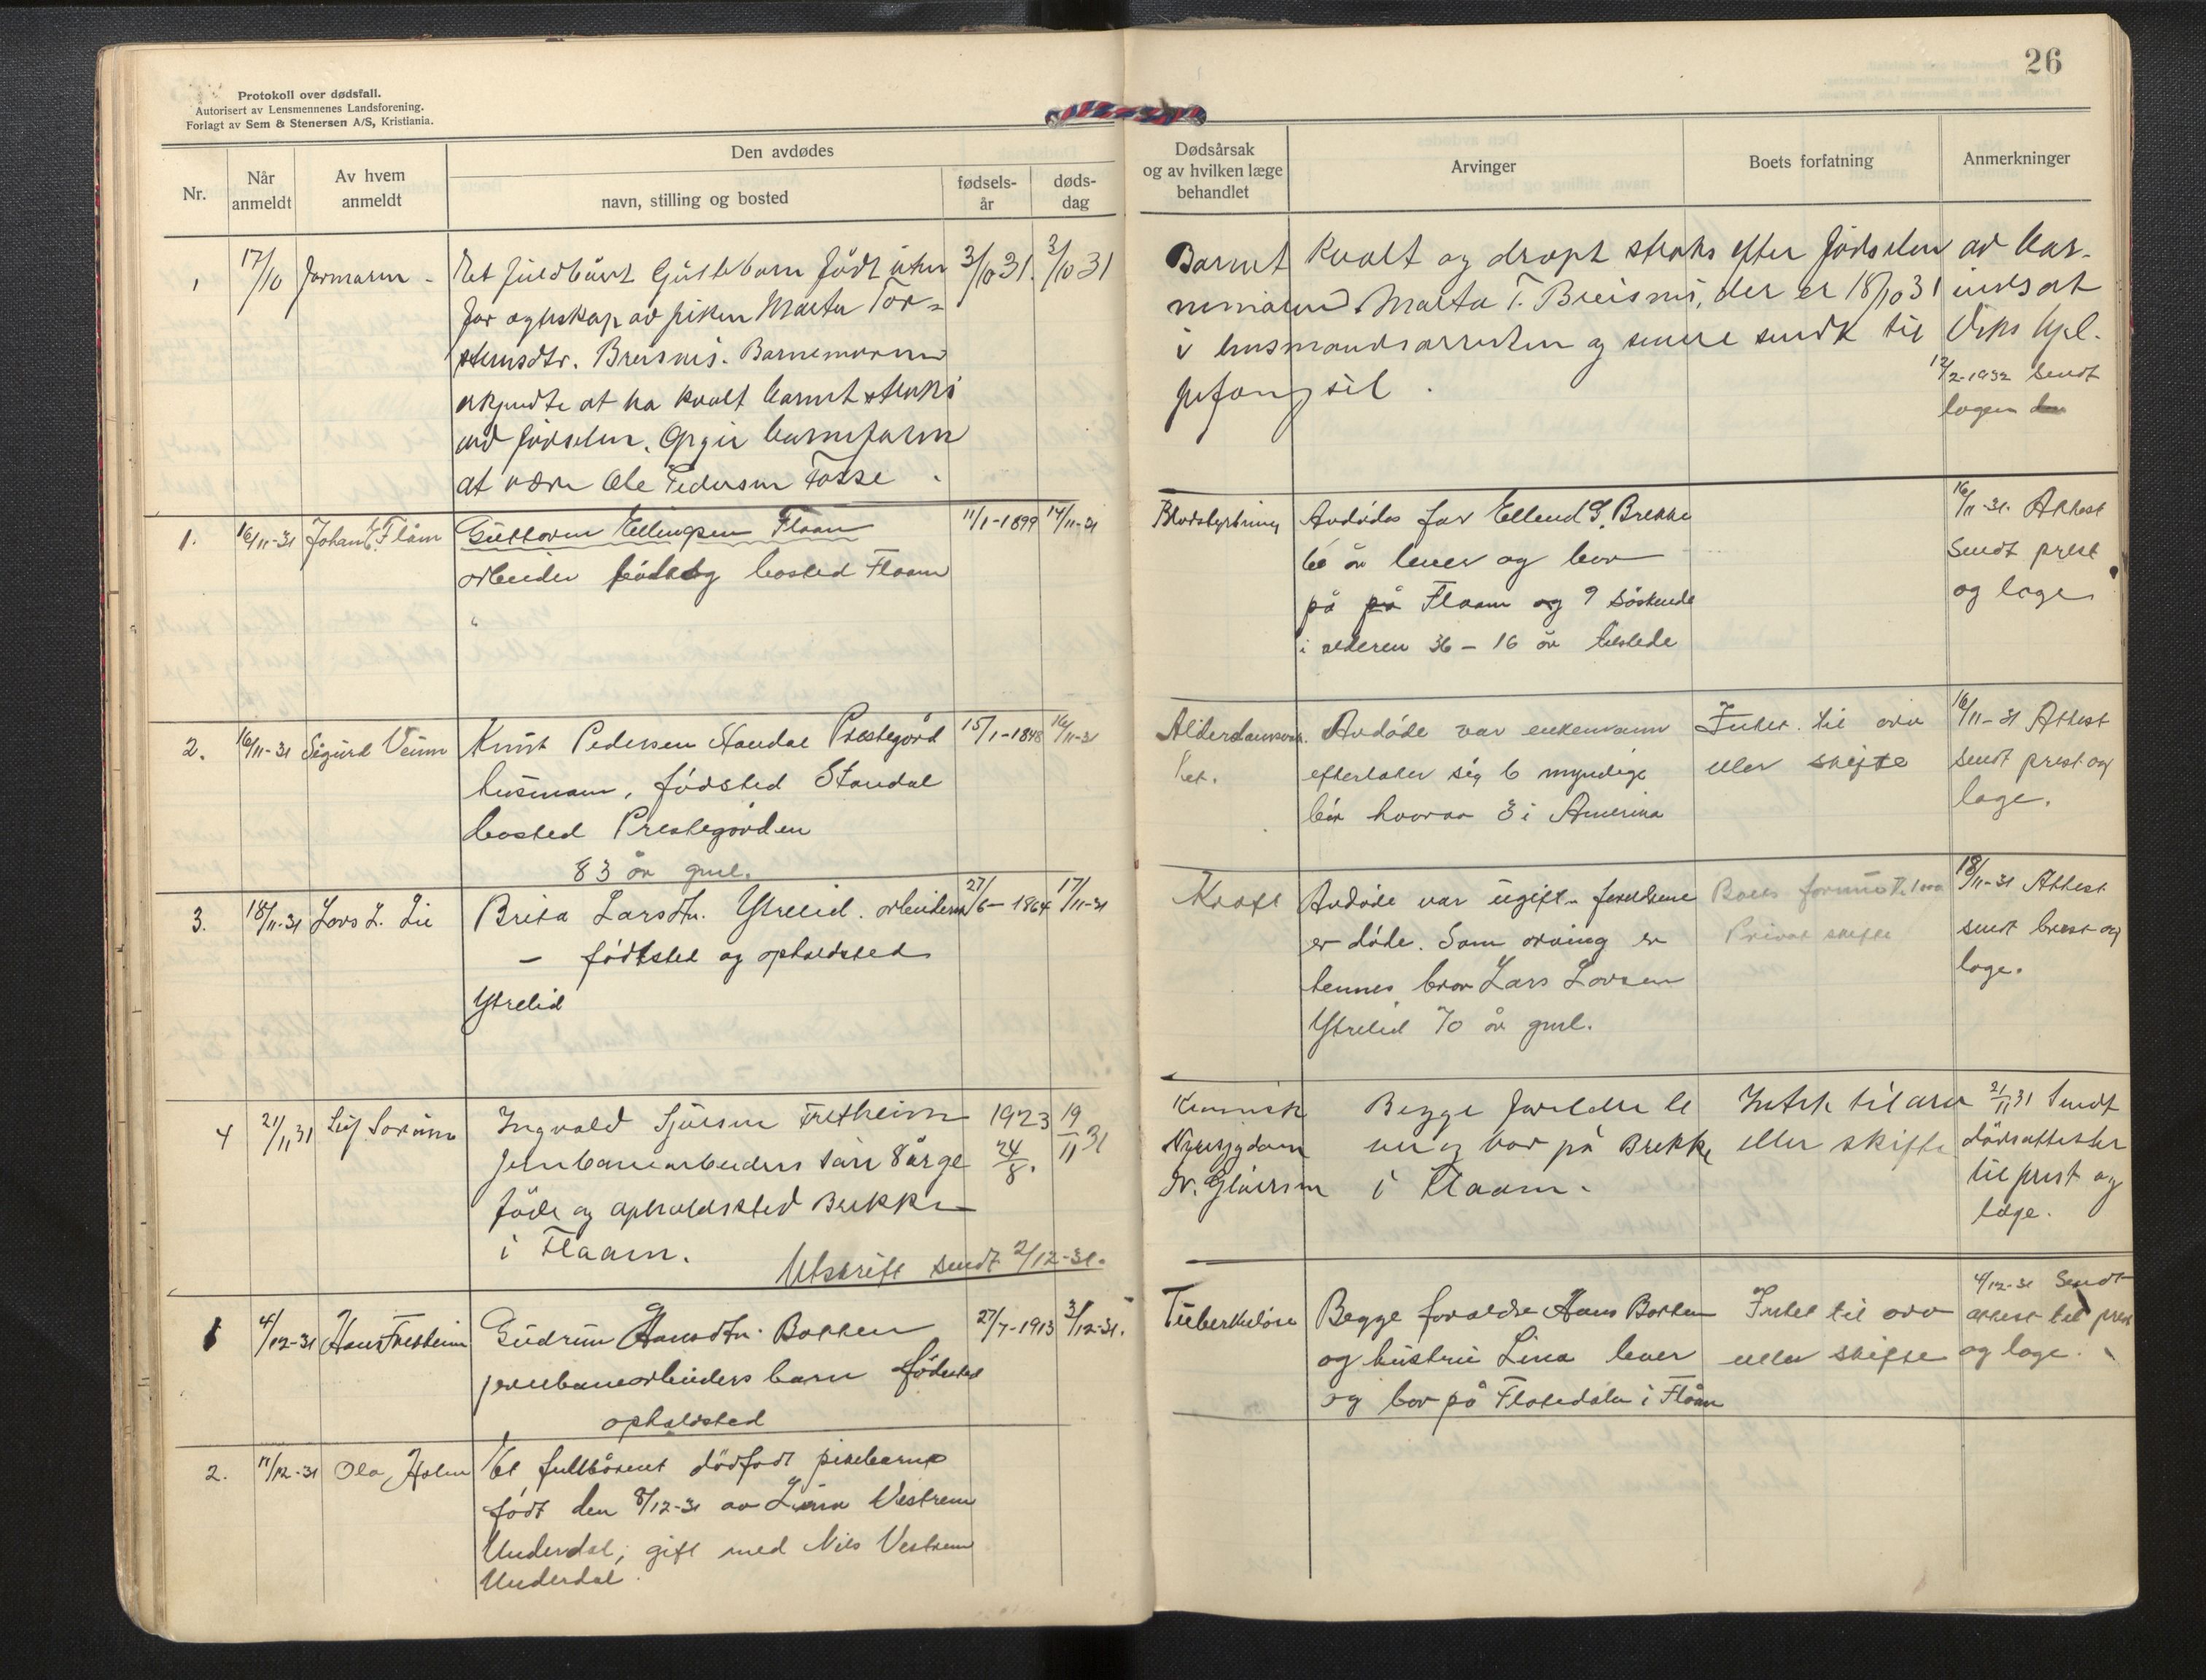 26
Protokoll over dødsfall.
Autorisert av Lensmennenes Landsforening.
Forlagt av Sem & Stenersen A/S, Kristiania.
Nr.
Når anmeldt
Av hvem anmeldt
Den avdødes
navn, stilling og bosted
fødsels-år
døds-dag
Dødsårsak og av hvilken læge behandlet
Arvinger
Boets forfatning
Anmerkninger
1 17/10 Jormarm - Et fuldbåret Guttebarn født uten 3/10 31. 3/10 31
for egteskap av piken Marta Tor-
steinsdtr. Breisnes. Barnemoren
erkjendte at ha kvalt barnet straks
ved fødselen. Opgir barnefaren
at være Ole Pedersen Fosse.
Barnet kvalt og dræpt straks efter fødselen av bar-
nemoren Marta T. Breisnes, der er 18/10 31 indsat
i lensmandsarresten og senere sendt til Viks hjel.
gefængsel.
12/2-1932 sendt
lagen
1. 16/11-31 Johan E. Flåm Guttorm Ellingsen Flaam 11/1-1899 14/11-31
arbeider bosted Flaam
Blodstyrtning Avdødes far Ellend G. Brekke
60 år lever og bor
på Flaam og 9 søskende
i alderen 36 - 16 år tilstede
16/11-31. Attest
sendt prest
og læge
2. 16/11-31 Sigurd Veum Knut Pedersen Standal Prestegård 15/1-1848 16/11-31
husmann, fødsted Standal
bosted Prestegården
83 år gml.
Alderdomssvak.
het.
Avdøde var enkemann
efterlater sig 6 myndige
bår hvorav 3 i Amerika
Intet til arv
eller skifte
16/11-31 Attest
sendt prest og
læge.
3. 18/11-31 Lars L. Li Brita Larsdtr. Ytrelid. arbeiderske 27/6-1864 17/11-31
- fødtsted og opholdsted
Ytrelid
Kræft Avdøde var ugift - foreldrene
er døde. Som arving er
hennes bror Lars Larsen
Ytrelid 70 år gml.
Boets formue
Privat skifte
18/11-31 Attest
sendt prest og
læge.
4 21/11 31 Leif Ingvald Sjursen Fretheim 1923 24/8. 19/11 31
jernbanearbeiders søn 8 årge
føde og opholdssted Brekke
i Flaam.
Utskrift sendt 2/12-31.
Kronisk
Nyresygdom
Dr. Gløersen
Begge foreldre le
ver og bor på Brekke
i Flaam.
Intet til arv
eller skifte
21/11 31 Sendt
dødsattester
til prest og
læge.
1 4/12-31 Hans Fretheim Gudrun Hansdtr. Bakken 27/7-1913 3/12-31.
jernbanearbeiders barn fødested
opholdsted
Tuberkulose Begge foreldre Hans Bakken
og hustru Lina lever
og bor på Flatedalen i Flåm
Intet til arv
eller skifte
4/12-31 Sendt
attest til prest
og læge.
2. 11/12-31 Ola Holm Et fullbårent dødfødt pikebarn
født den 8/12-31 av Lina Vestrem
Underdal, gift med Nils Vestrem
Underdal.